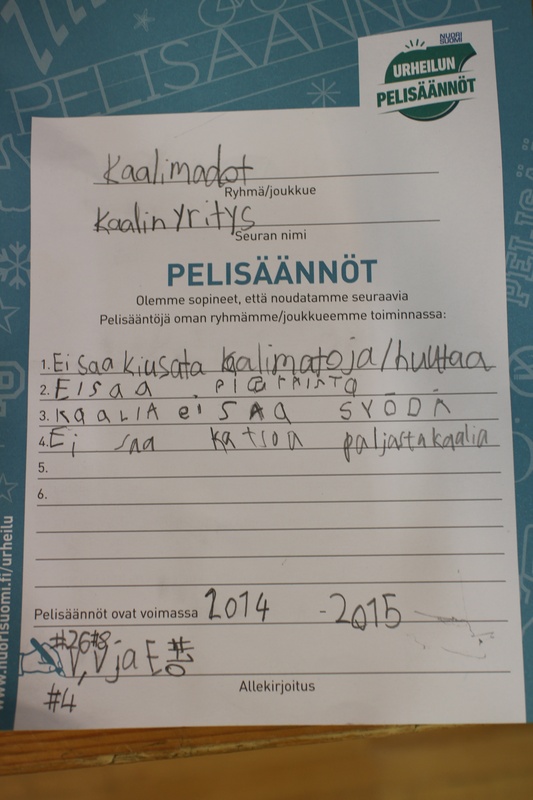 PELISÄÄNNÖT
NUORI
SUOMI
URHEILUN
PELISÄÄNNÖT
Kaalimadot
Ryhmä/joukkue
Kaalin yritys
Seuran nimi
PELISÄÄNNÖT
Olemme sopineet, että noudatamme seuraavia
Pelisääntöjä oman ryhmämme/joukkueemme toiminnassa:
1. Ei saa kiusata kaalimatoja/huutaa
2. EI saa
3. KaaLIA ei SAA SYÖDÄ
4. Ei saa katsoa paljasta kaalia
5.
6.
Pelisäännöt ovat voimassa 2014 - 2015
#26 #8
V, V ja E #10
#4
Allekirjoitus
www.nuorisuomi.fi/urheilu